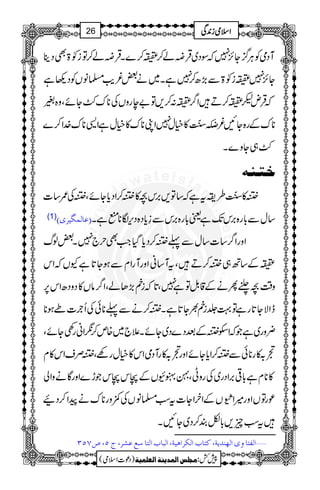 اسلامی زندگی
26
آدمی کو ہرگز جائز نہیں کہ سودی قرضہ لے کر عقیقہ کرے۔ قرضہ لے کر تو زکوٰۃ بھی دینا
جائز نہیں عقیقہ زکوٰۃ سے بڑھ کر نہیں ہے۔ میں نے بعض غریب مسلمانوں کو دیکھا ہے
کہ قرض لیکر عقیقہ کرتے ہیں اگر عقیقہ نہ کریں تو بے چاروں کی ناک کٹ جائے، وہ بغیر
ناک کے رہ جائیں غرضکہ سنت کا خیال نہیں اپنی ناک کا خیال ہے ایسی ناک خدا کرے
کٹ ہی جاوے۔
ختنہ
ختنہ کا سنت طریقہ یہ ہے کہ ساتویں برس بچہ کا ختنہ کرا دیا جائے، ختنہ کی عمر سات
سال سے بارہ برس تک ہے یعنی بارہ برس سے زیادہ دیر لگانا منع ہے۔ (عالمگیری)(1)
اور اگر سات سال سے پہلے ختنہ کر دیا گیا جب بھی حرج نہیں۔ بعض لوگ
عقیقے کے ساتھ ہی ختنہ کرتے ہیں، یہ آسانی اور آرام سے ہو جاتا ہے کیوں کہ اس
وقت بچہ چلنے پھرنے کے قابل تو ہے نہیں، تا کہ زخم بڑھا لے، اگر ماں کا دودھ اس پر
ڈالا جاتا رہے تو بہت جلد زخم بھر جاتا ہے۔ ختنہ کرنے سے پہلے نائی کی اُجرت طے ہونا
ضروری ہے جو کہ اسکو ختنہ کے بعد دے دی جائے۔ علاج میں خاص نگرانی رکھی جائے،
تجربہ کار نائی سے ختنہ کرایا جائے اور تجربہ کار آدمی اس کا خیال رکھے، ختنہ صرف اس کام
کا نام ہے باقی برادری کی روٹی، بہن، بہنوئیوں کے پچاس پچاس جوڑے اور گانے والی
عورتوں اور میراثیوں کے اخراجات یہ سب مسلمانوں کی کمزور ناک نے پیدا کر دیئے
ہیں یہ سب چیزیں بالکل بند کر دی جائیں۔
1.....الفتاوی الهندیة، کتاب الکراهیة، الباب التاسع عشر، ج ٥، ص ٣٥٧
پیش کش: مجلس المدینة العلمیة (دعوت اسلامی)